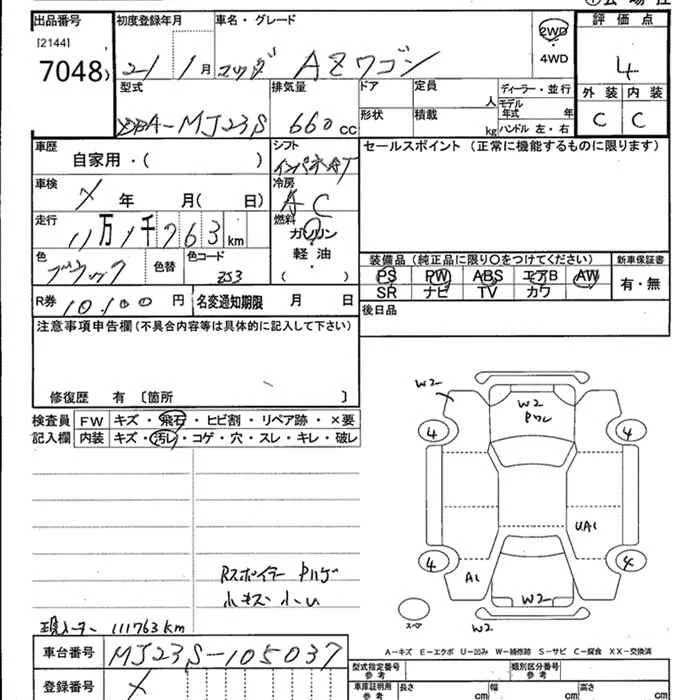 出品番号 初度登録年月 車名・グレード 評価点
[2144]
7048 21 1月 マツダ AZワゴン 2WD 4WD 4
型式 排気量 ドア 定員 人 ディーラー・並行 外装 内装
DBA-MJ23S 660cc 形状 積載 kg モデル年式 年 ハンドル 左・右 C C
車歴 シフト セールスポイント (正常に機能するものに限ります)
自家用・( ) インパネAT
車検 冷房
X 年 月( 日) AC
走行 燃料
11万1千763km ガソリン
色 色替 色コード 軽油・
ブラック ZJ3 ( )
装備品(純正品に限り○をつけてください) 新車保証書
PS PW ABS エアB AW 有・無
SR ナビ TV カワ
R券 10,100円 名変通知期限 月 日
後日品
注意事項申告欄(不具合内容等は具体的に記入して下さい)
修復歴 有 〔箇所 〕
検査員 FW キズ・飛石・ヒビ割・リペア跡・×要
記入欄 内装 キズ・汚レ・コゲ・穴・スレ・キレ・破レ
W2
W2
4 4
UA1
4 4
A1
W2
スペア W2
Rスポイラー
小キズ 小凹
現メーター 111763km
A-キズ E-エクボ U-凹み W-補修跡 S-サビ C-腐食 XX-交換済
車台番号 MJ23S-105037
登録番号 X
型式指定番号 参考 類別区分番号 参考
車庫証明用 参考 長さ cm 幅 cm 高さ cm